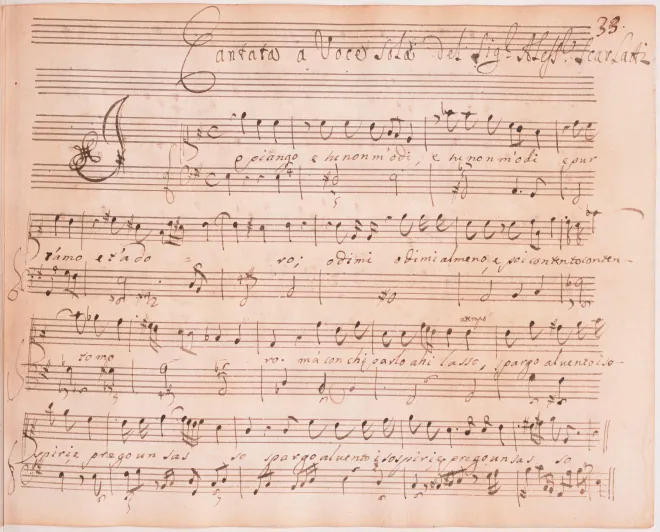 33.
Cantata à Voce sola del Sig.r Aless.o Scarlatti
Io piango e tu non m'odi, e tu non m'odi e pur
t'amo e t'ado = ro; odimi odimi almeno, e poi contento conten-
to mo ro. mà con chi parlo ahi lasso, spargo al vento i so-
spiri e prego un sas so spargo al vento i sospiri e prego un sas so